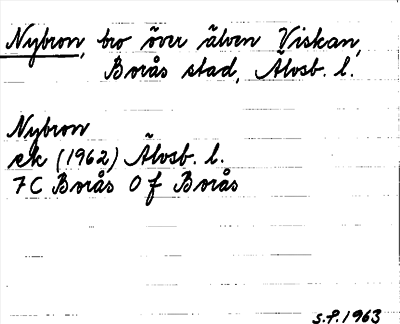 Nybron, bro över älven Viskan,
Borås stad, Älvsb. l.
Nybron
ek (1962) Älvsb. l.
7C Borås 0 f Borås
S.P. 1963